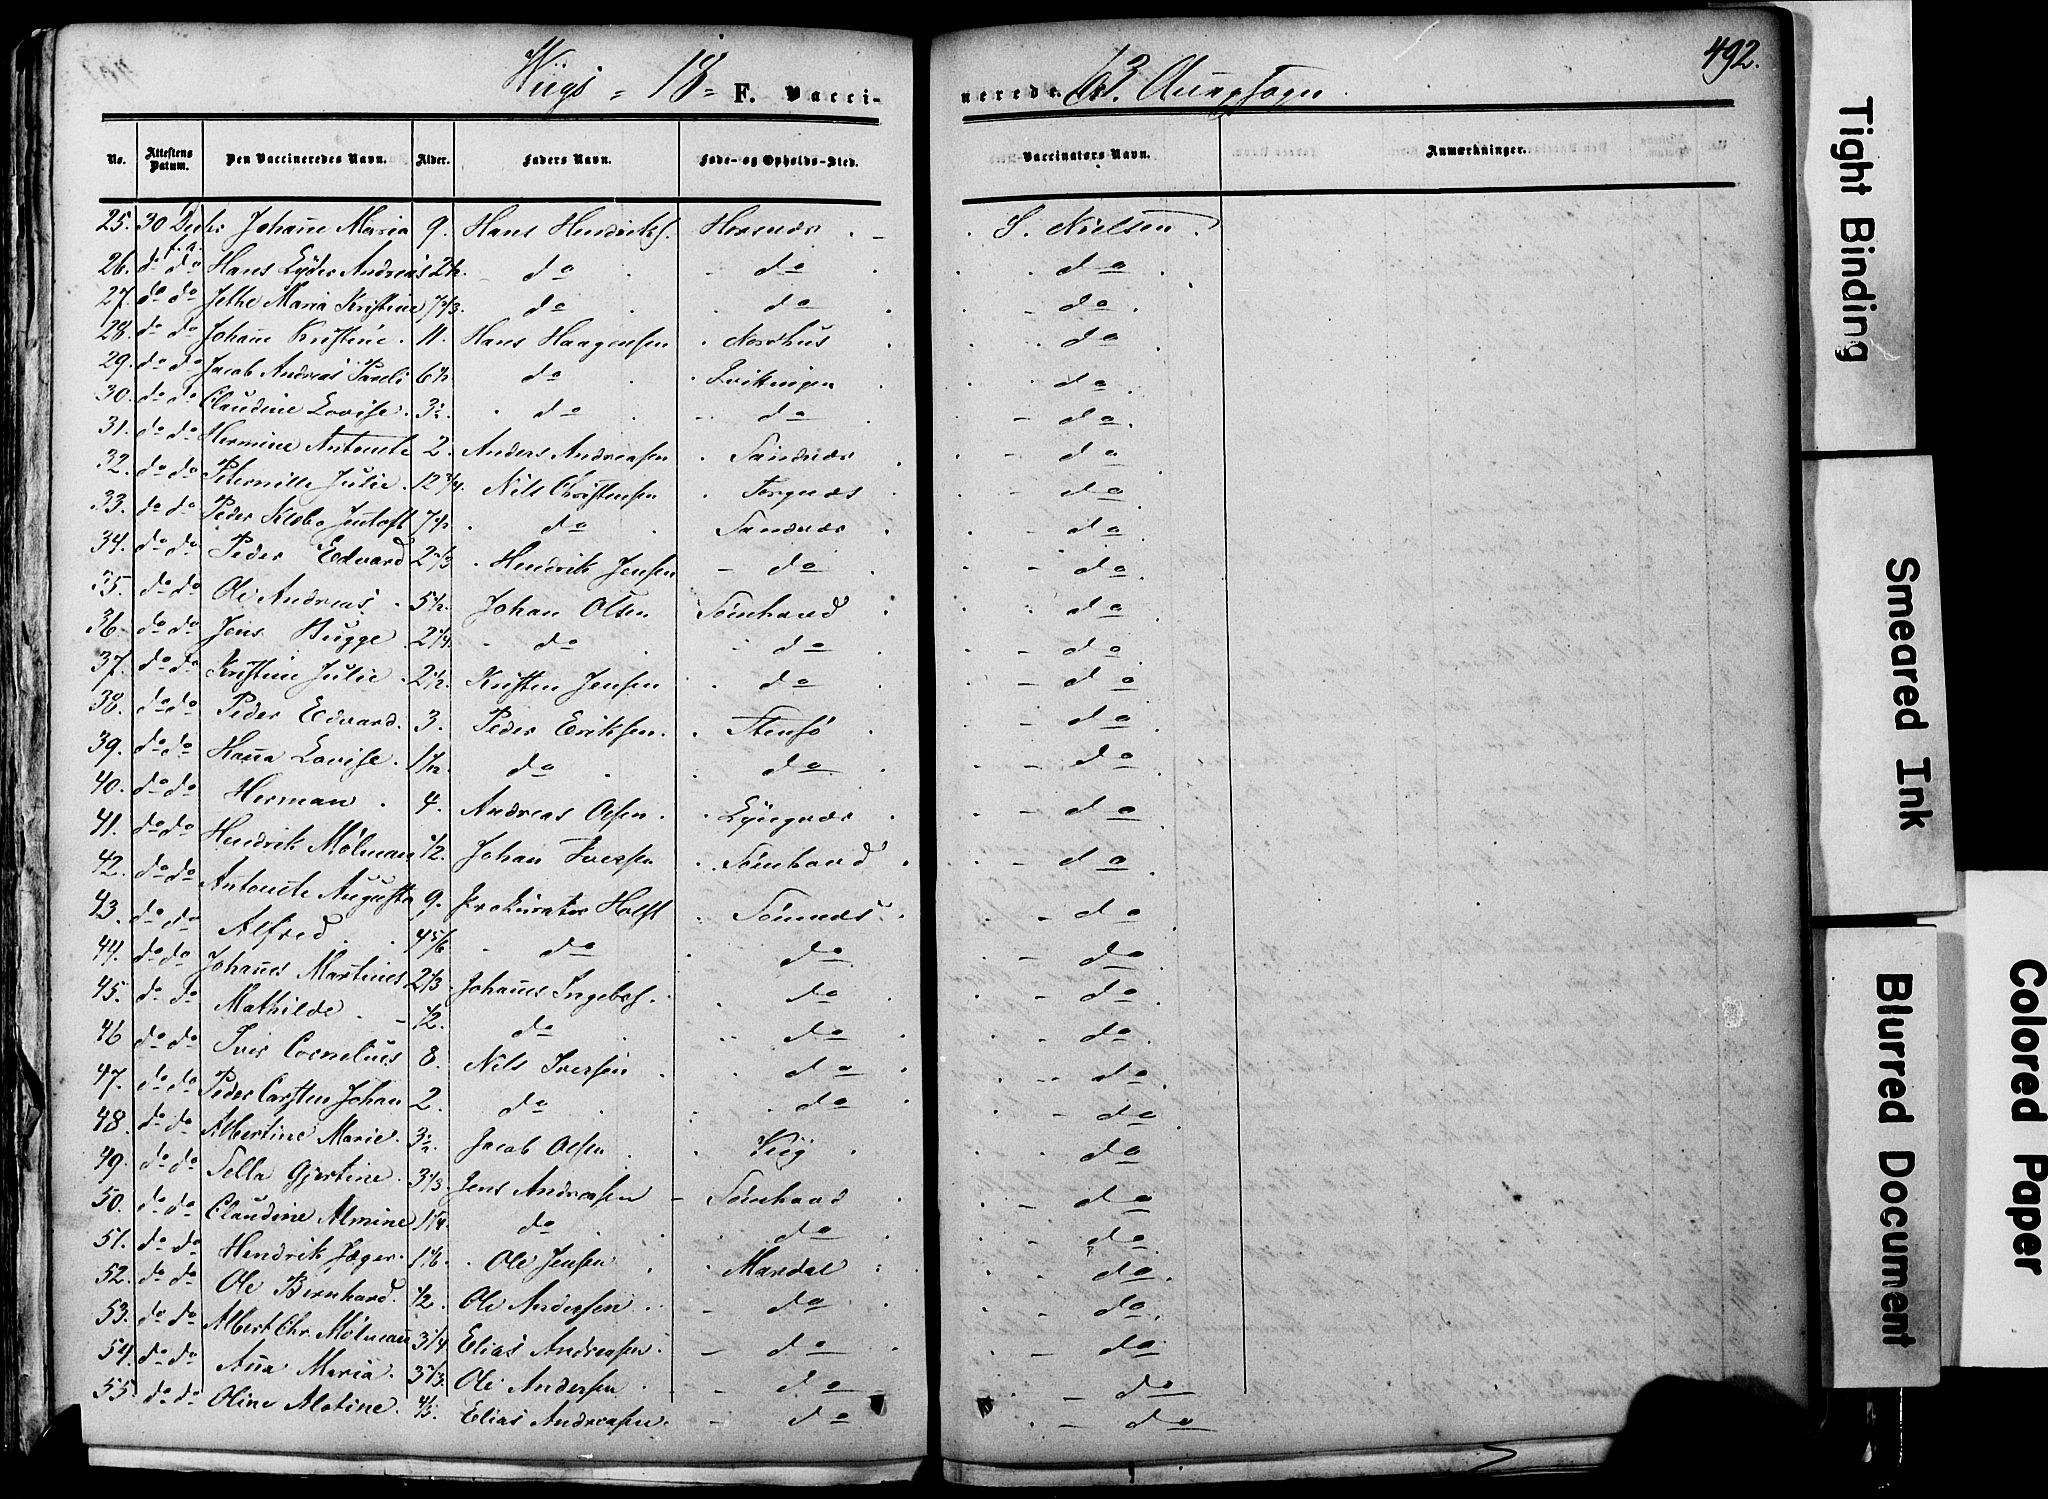 492.
Wiigs - 18- F. Vacci-
nerede. 63. Annexsogn.
No. Attestens Datum. Den Vaccineredes Navn. Alder. Faders Navn. Føde- og Opholds-Sted. Vaccinators Navn. Anmærkninger.
25. 30 Decbr f.A. Johanne Maria 9. Hans Hendriks. Hornnæs. S. Nielsen.
26. do do Hans Eyder Andreas 2½. do do do
27. do do Jethe Maria Kristine 7 2/3. do do do
28. do do Johanne Kristine. 11. Hans Haagensen Nordhus do
29. do do Jacob Andreas Pareli 6½. do do
30. do do Claudine Lovise. 3½. do do do
31. do do Hermine Antonete 2. Anders Andreasen Sandnæs do
32. do do Peternille Julie. 12 3/4. Nils Christensen Torgnæs do
33. do do Peder Klæbo Jentoft 7½. do Sandnæs do
34. do do Peder Edvard 2 1/3 Hendrik Jensen do do
35. do do Ole Andreas. 5½. Johan Olsen Sønhand do
36. do do Jens Bugge 2 1/4. do do do
37. do do Kristine Julie. 2½. Kristen Jensen do do
38. do do Peder Edvard. 3. Peder Eriksen. Stensø do
39. do do Hanna Lovise. 1½. do do do
40. do do Herman. 4. Andreas Olsen. Lyngnæs do
41. do do Hendrik Mølman ½. Johan Iversen Sønhand do
42. do do Antonete Augusta 9. Prokurator Holst Sønnæs do
43. do do Alfred. 4 5/6 do do do
44. do do Johannes Martines 2 1/3. Johannes Ingebr. do do
45. do do Mathilde ½. do do do
46 do do Iver Cornelius 8. Nils Iversen do do
47. do do Peder Carsten Johan 2. do do do
48. do do Albertine Marie. 3½. Jacob Olsen Viig do
49. do do Sella Gjertine. 3 1/3. Jens Andreasen Sønhand do
50. do do Claudine Almine 1 1/4. do do do
51. do do Hendrik Jæger. 1 1/6. Ole Jensen Mardal do
52. do do Ole Bernhard. ½. Ole Andersen do do
53. do do Albert Chr. Mølman 3 1/4 Elias Andreasen. do do
54. do do Anna Maria. 3 1/3. Ole Andersen do do
55. do do Oline Alotine. Elias Andreasen. do do
Tight Binding
Smeared Ink
Blurred Document
Colored Paper